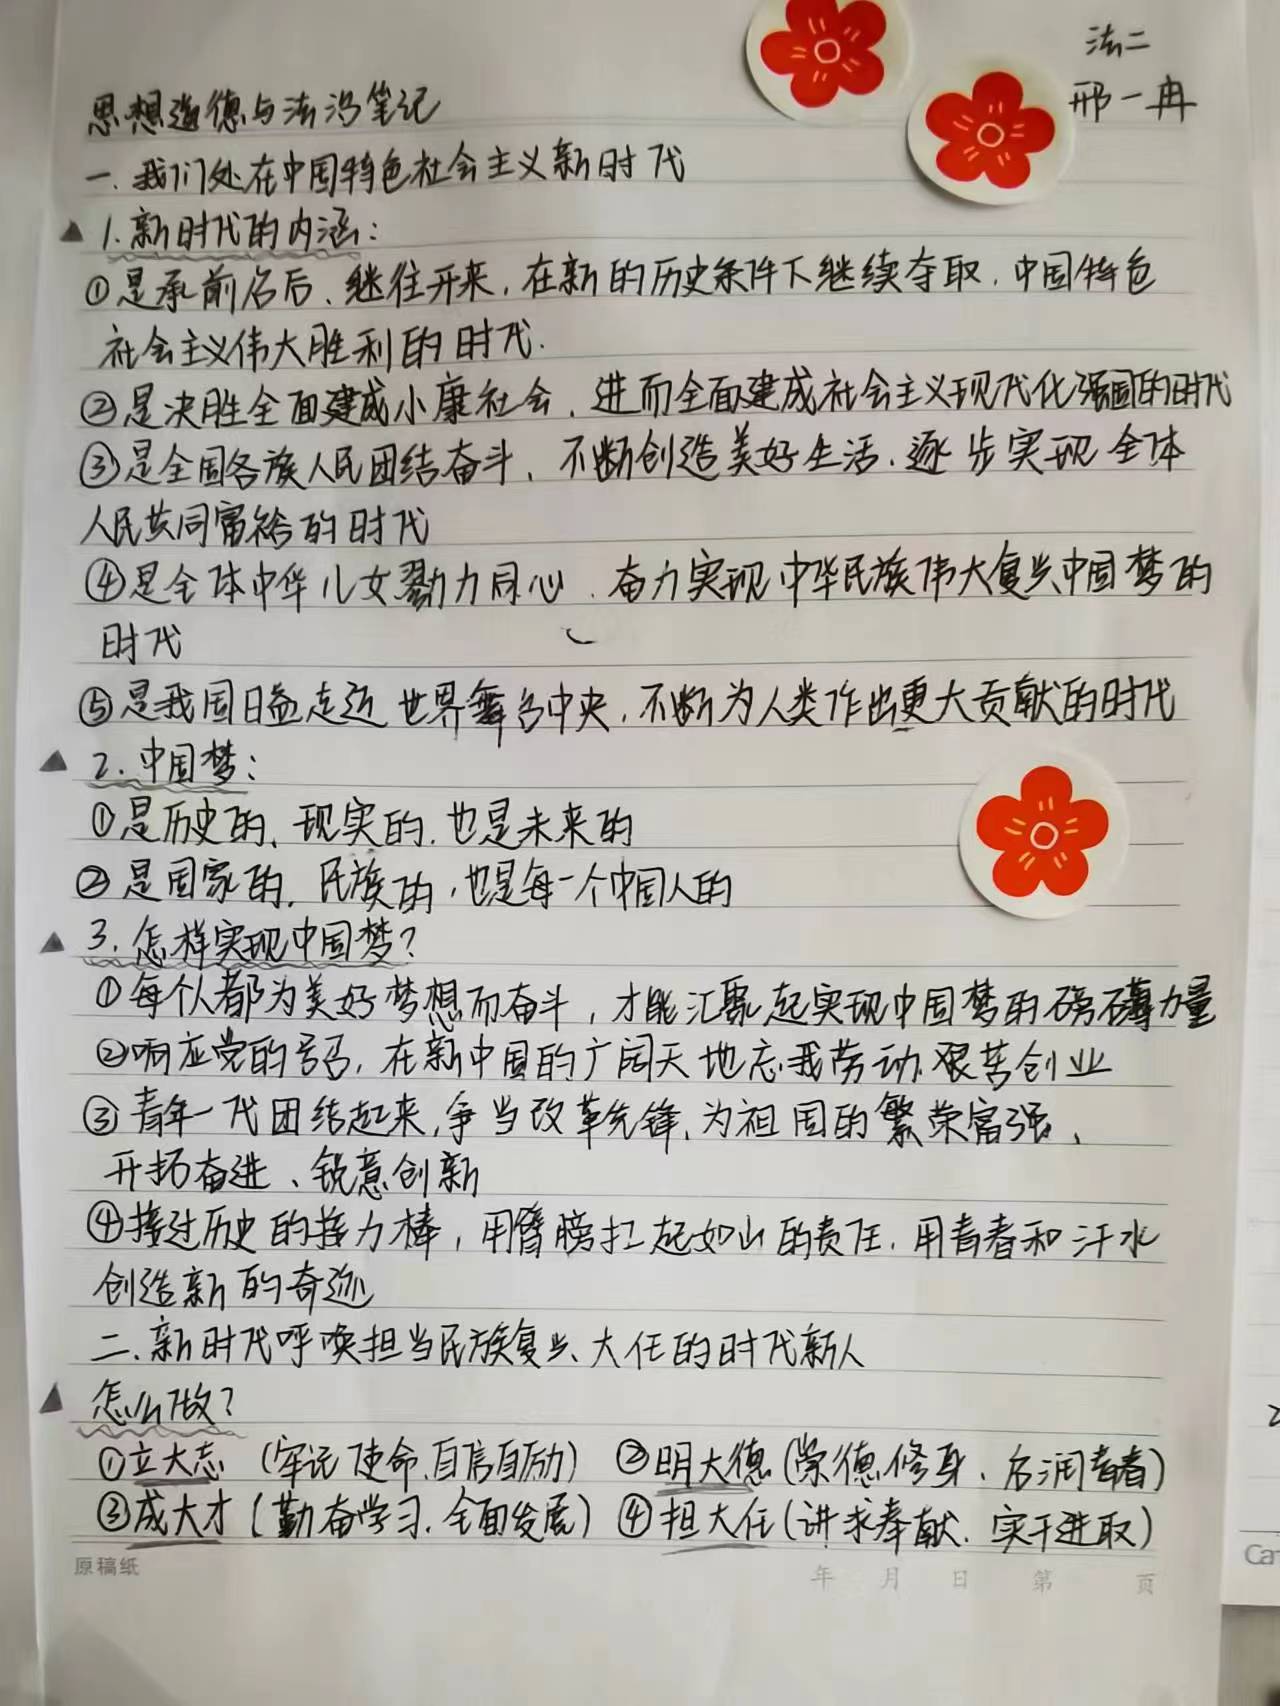 法二
邢一冉
思想道德与法治笔记
一.我们处在中国特色社会主义新时代
▲ 1.新时代的内涵:
①是承前启后、继往开来,在新的历史条件下继续夺取.中国特色
社会主义伟大胜利的时代.
②是决胜全面建成小康社会、进而全面建成社会主义现代化强国的时代
③是全国各族人民团结奋斗、不断创造美好生活、逐步实现全体
人民共同富裕的时代
④是全体中华儿女勠力同心、奋力实现中华民族伟大复兴中国梦的
时代
⑤是我国日益走近世界舞台中央,不断为人类作出更大贡献的时代
▲ 2.中国梦:
①是历史的、现实的.也是未来的
②是国家的.民族的,也是每一个中国人的
▲ 3.怎样实现中国梦?
①每个人都为美好梦想而奋斗,才能汇聚起实现中国梦的磅礴力量
②响应党的号召,在新中国的广阔天地忘我劳动.艰苦创业
③青年一代团结起来,争当改革先锋,为祖国的繁荣富强、
开拓奋进、锐意创新
④接过历史的接力棒,用臂膀扛起如山的责任.用青春和汗水
创造新的奇迹
二.新时代呼唤担当民族复兴大任的时代新人
▲ 怎么做?
①立大志 (牢记使命.自信自励) ②明大德(崇德修身、启润青春)
③成大才 (勤奋学习.全面发展) ④担大任(讲求奉献.实干进取)
原稿纸 年 月 日 第 页
Ca